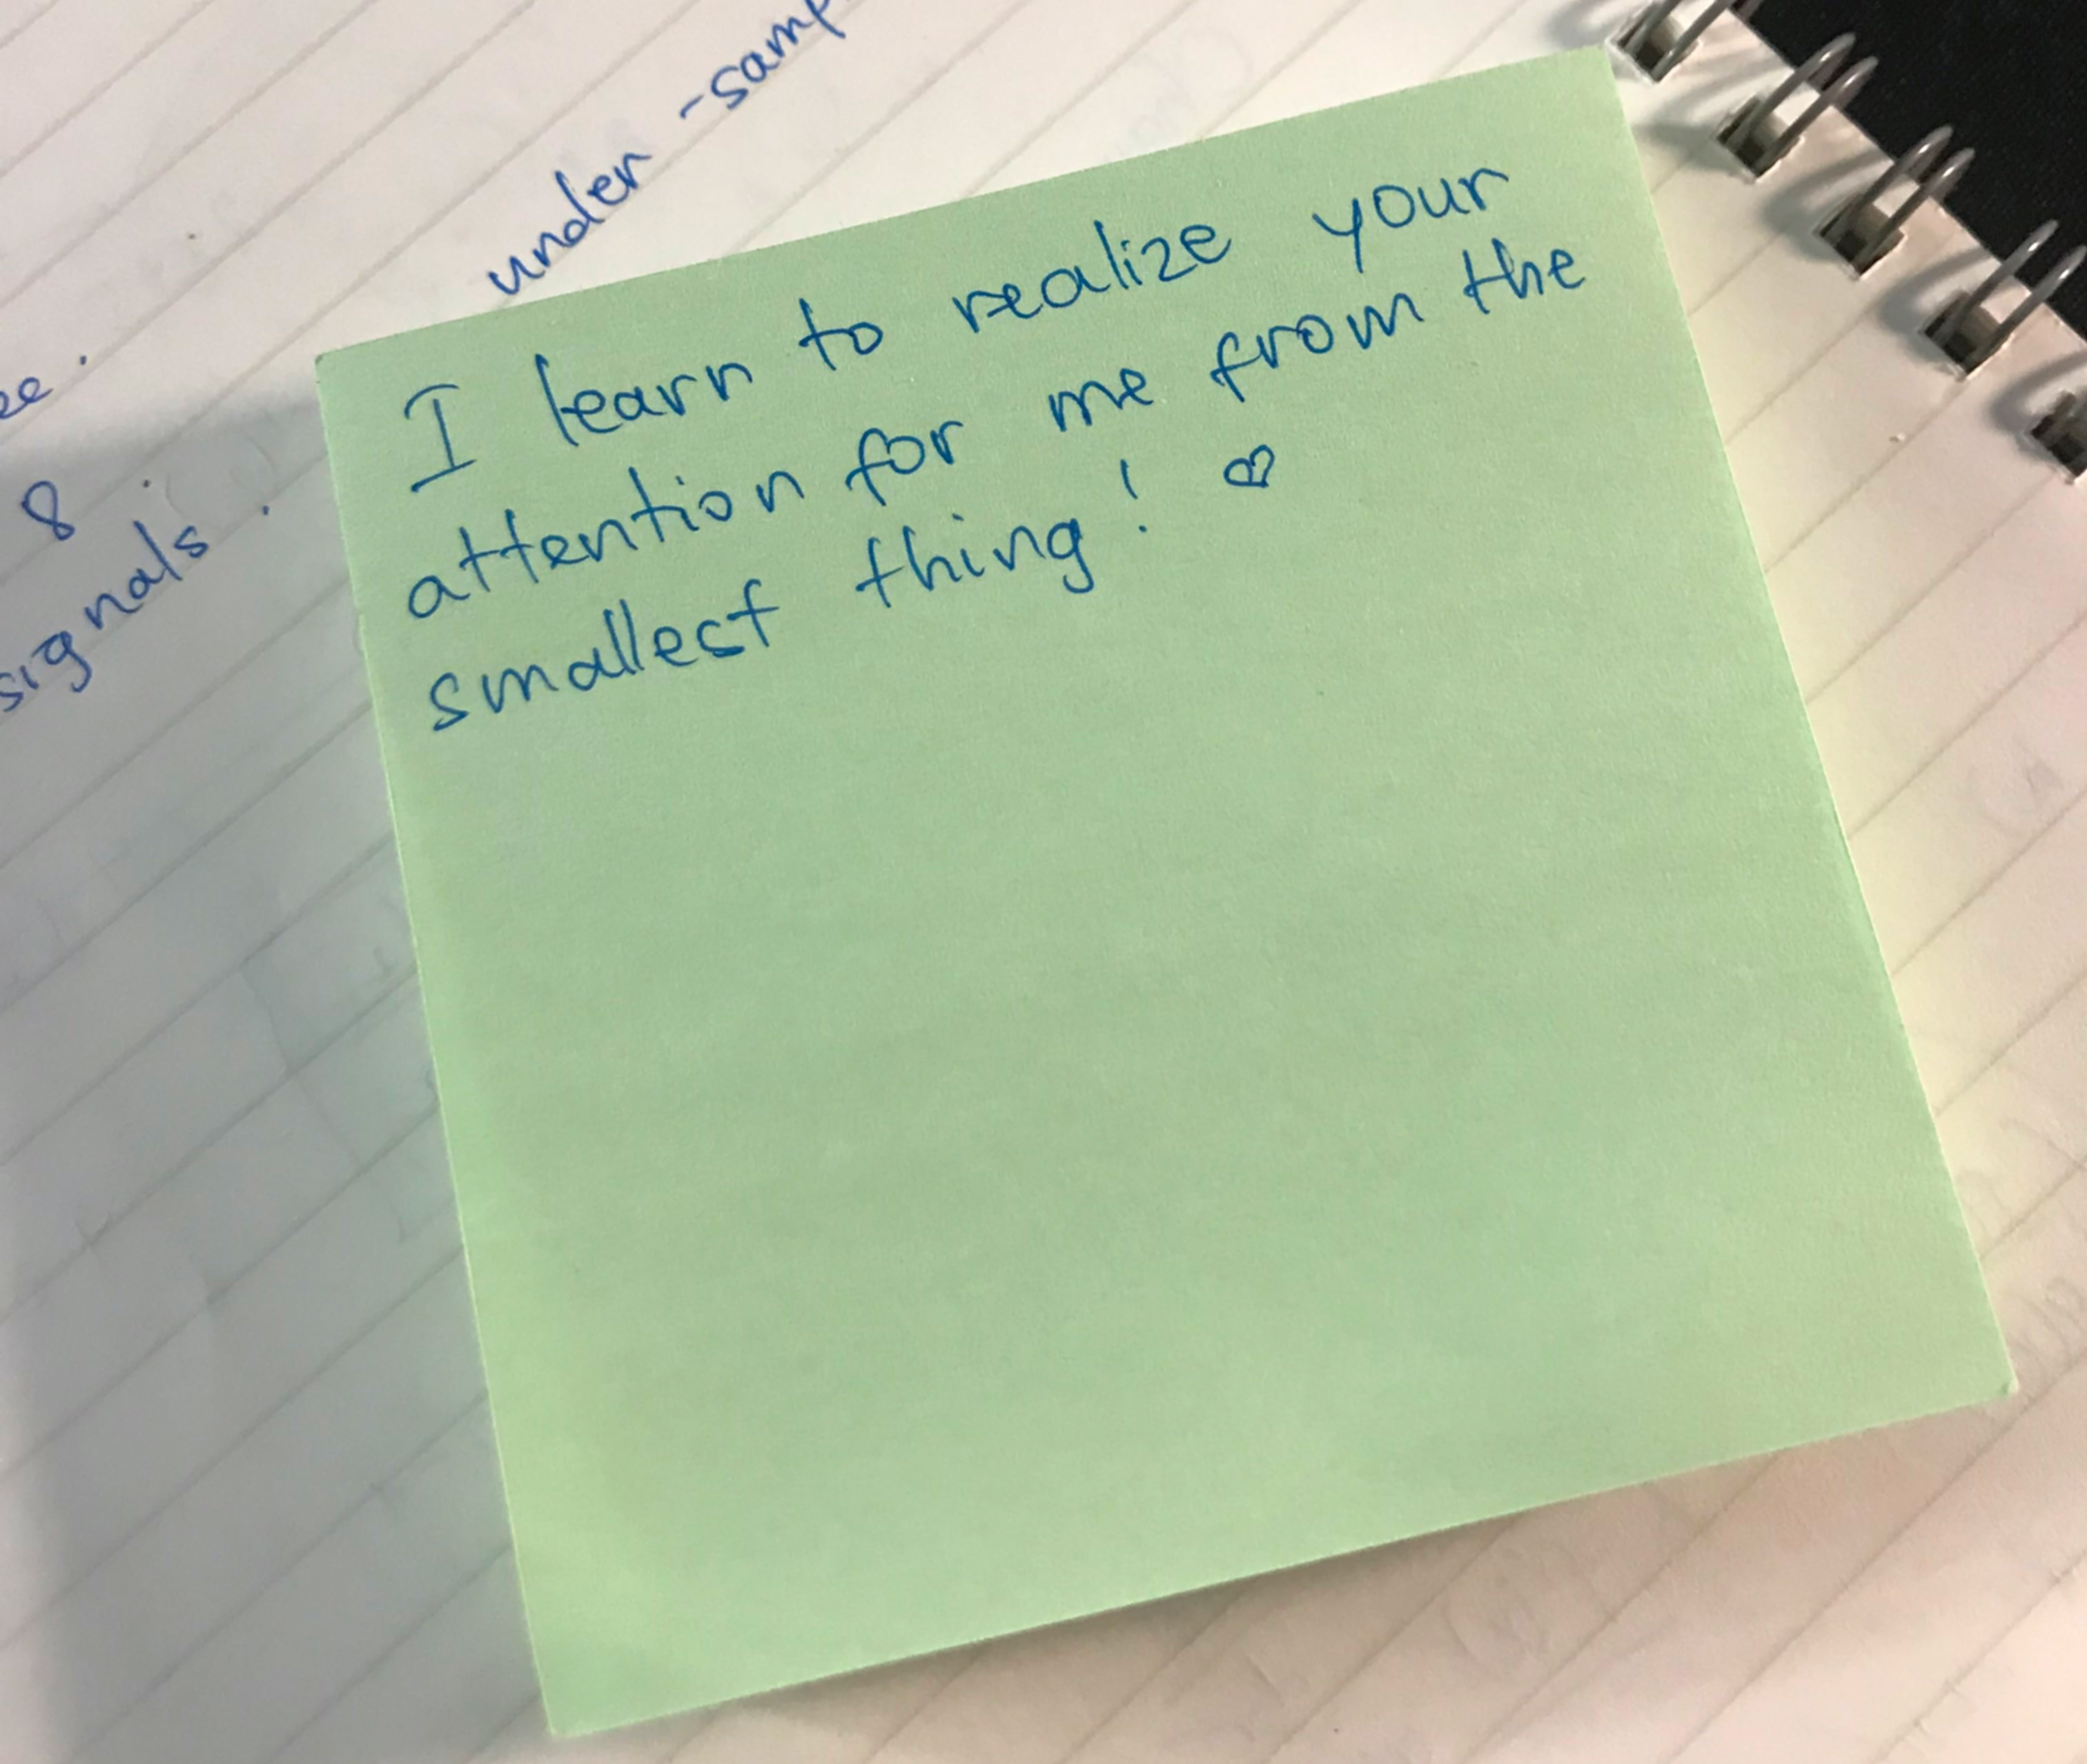 under-samp
ee.
8
signals.
I learn to realize your
attention for me from the
smallest thing! ♡